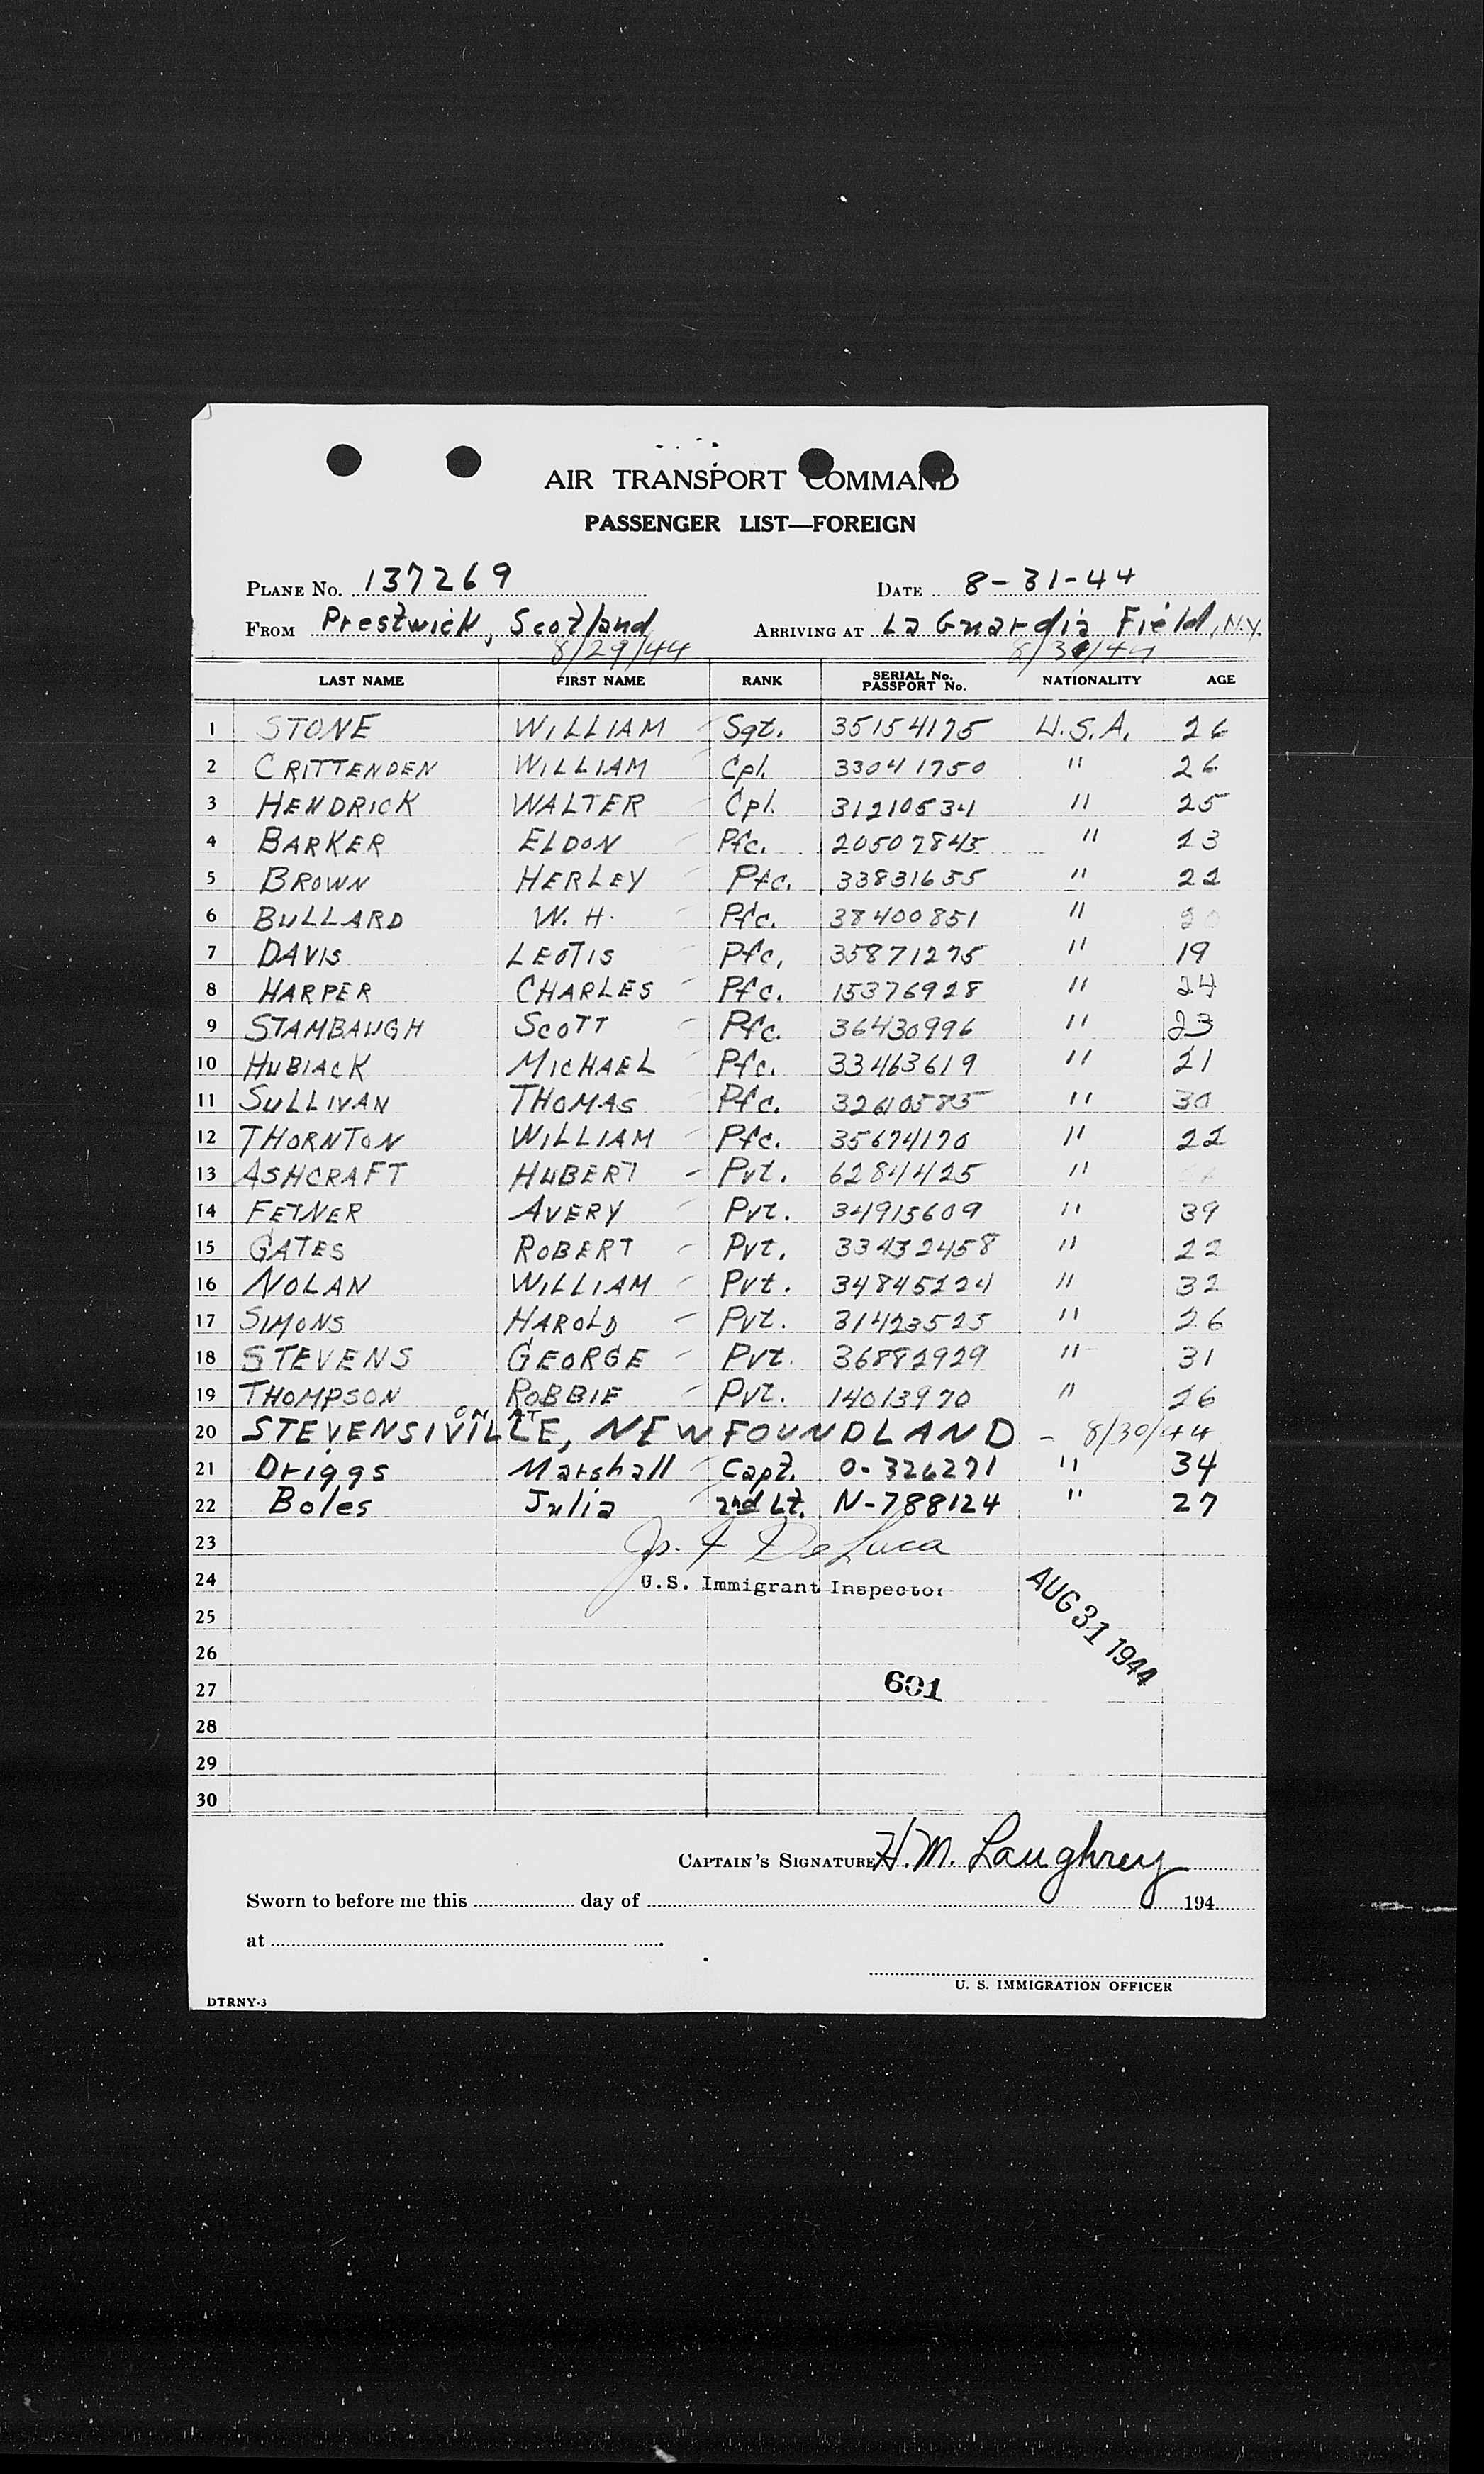 AIR TRANSPORT COMMAND
PASSENGER LIST—FOREIGN
PLANE No. 137269 DATE 8-31-44
FROM Prestwick, Scotland ARRIVING AT La Guardia Field, N.Y.
8/29/44 8/31/44
LAST NAME FIRST NAME RANK SERIAL No. PASSPORT No. NATIONALITY AGE
1 STONE WILLIAM Sgt. 35154175 U.S.A. 26
2 CRITTENDEN WILLIAM Cpl. 33041750 " 26
3 HENDRICK WALTER Cpl. 31210534 " 25
4 BARKER ELDON Pfc. 20507845 " 23
5 BROWN HERLEY Pfc. 33831655 " 22
6 BULLARD W. H. Pfc. 38400851 " 20
7 DAVIS LEOTIS Pfc. 35871275 " 19
8 HARPER CHARLES Pfc. 15376928 " 24
9 STAMBAUGH SCOTT Pfc. 36430996 " 23
10 HUBIACK MICHAEL Pfc. 33463619 " 21
11 SULLIVAN THOMAS Pfc. 32610585 " 30
12 THORNTON WILLIAM Pfc. 35674170 " 22
13 ASHCRAFT HUBERT - Pvt. 6284425 "
14 FETNER AVERY Pvt. 34915609 " 39
15 GATES ROBERT Pvt. 33432458 " 22
16 NOLAN WILLIAM Pvt. 34845224 " 32
17 SIMONS HAROLD - Pvt. 31423525 " 26
18 STEVENS GEORGE - Pvt. 36882929 " 31
19 THOMPSON ROBBIE Pvt. 14013970 " 26
ON AT
20 STEVENSIVILLE, NEWFOUNDLAND - 8/30/44
21 Driggs Marshall Capt. O-326271 " 34
22 Boles Julia 2nd Lt. N-788124 " 27
23 Jos. F De Luca
24 U.S. Immigrant Inspector
AUG 31 1944
25
26
27 601
28
29
30
CAPTAIN'S SIGNATURE H.M. Laughrey
Sworn to before me this day of 194
at
U. S. IMMIGRATION OFFICER
DTRNY-3